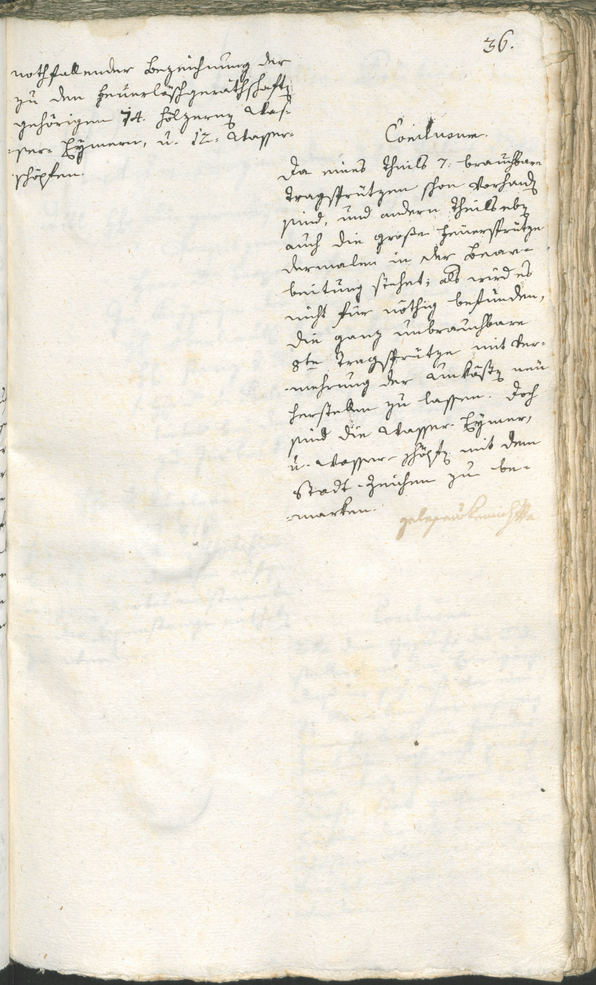 36.
nothfallender Bezeichnung der
zu den Feuerlöschgeräthschaften
gehörigen 74. hölzernen Was-
ser-Eymern, u. 12. Wasser-
schöpfen.
Conclusum.
Da eines Theils 7. brauchbare
Tragsprützen schon vorhanden
sind, und andern Theils eben
auch die große Feuersprütze
dermalen in der Bear-
beitung stehet; als wird es
nicht für nöthig befunden,
die ganz unbrauchbare
8te Tragsprütze mit Ver-
mehrung der Unkösten neu
herstellen zu lassen. Doch
sind die Wasser-Eymer,
u. Wasser-schöpfen mit dem
Stadt-Zeichen zu be-
marken.